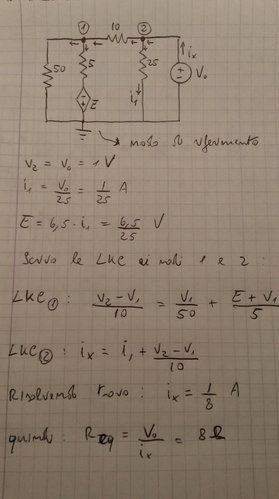 ① 10 ②
50 5 25 ix Vo
E i1
nodo di riferimento
V2 = Vo = 1 V
i1 = Vo/25 = 1/25 A
E = 6,5 · i1 = 6,5/25 V
Scrivo le LKC ai nodi 1 e 2 :
LKC① : (V2 - V1)/10 = V1/50 + (E + V1)/5
LKC② : ix = i1 + (V2 - V1)/10
Risolvendo trovo : ix = 1/8 A
quindi : Req = Vo/ix = 8 Ω